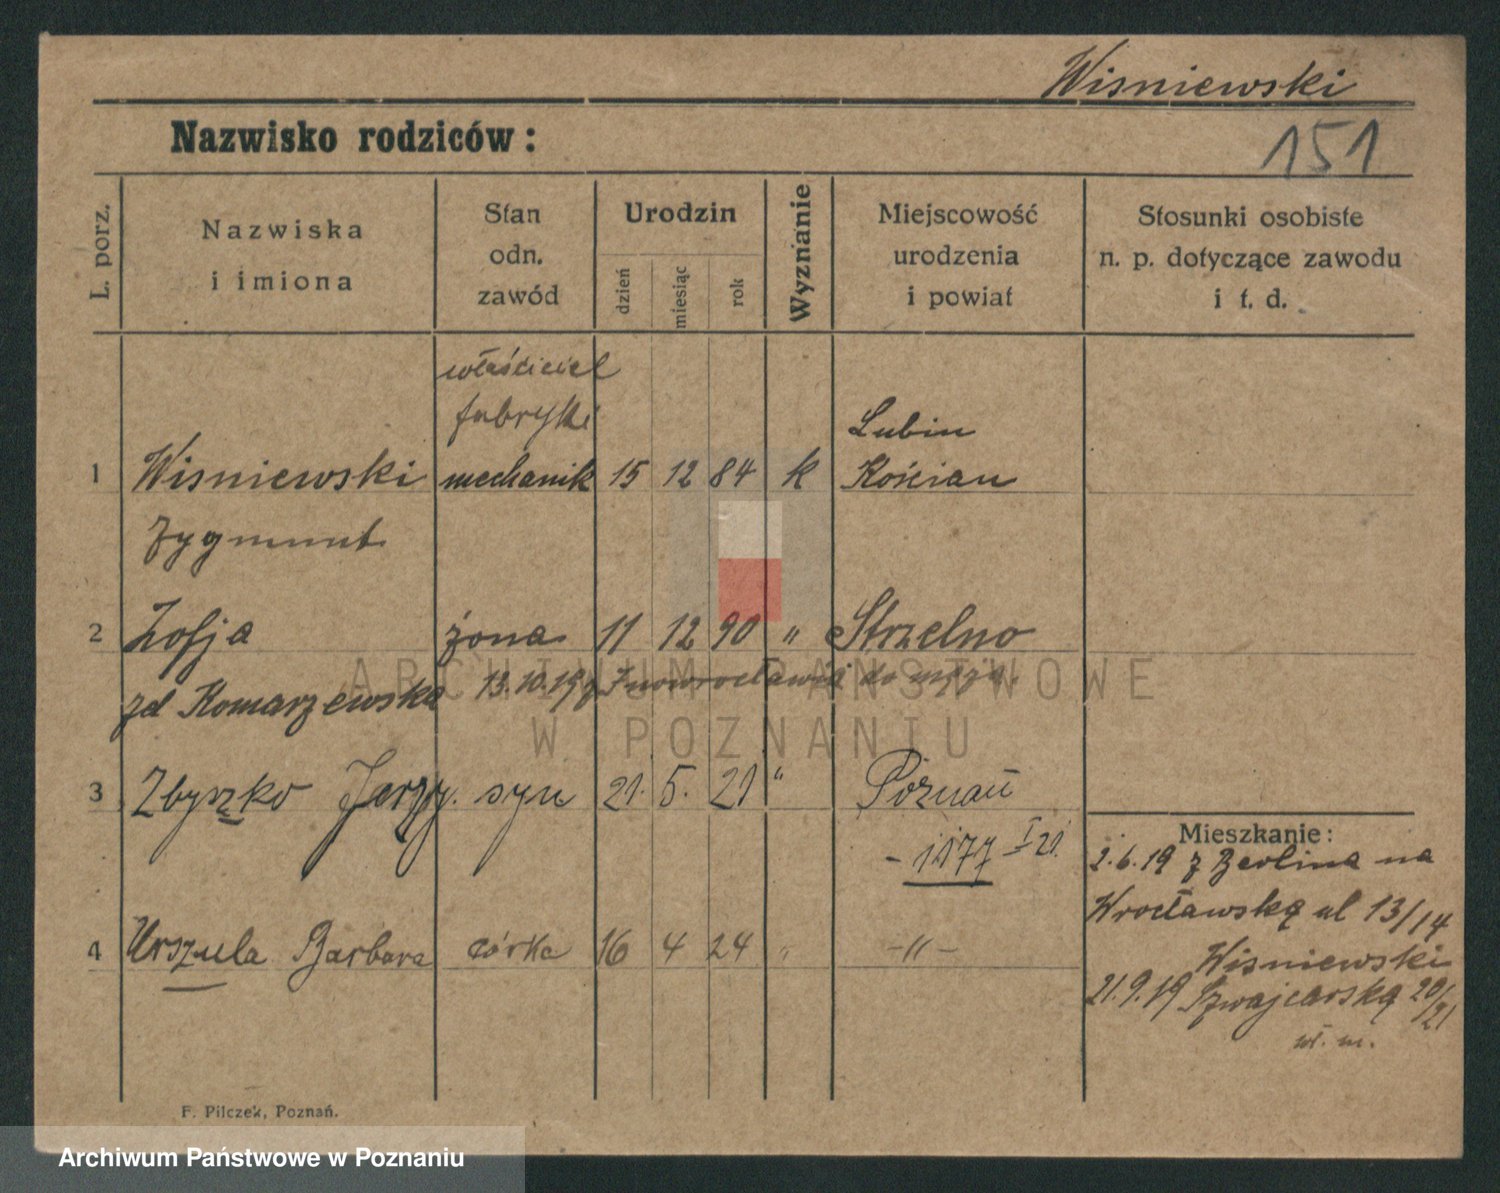 Wisniewski
Nazwisko rodziców:
151
L. porz.
Nazwiska i imiona
Stan odn. zawód
Urodzin
dzień
miesiąc
rok
Wyznanie
Miejscowość urodzenia i powiat
Stosunki osobiste n. p. dotyczące zawodu i t. d.
właściciel
fabryki
Lubin
1 Wisniewski mechanik 15 12 84 k Kościan
Zygmunt
2 Zofja żona 11 12 90 " Strzelno
zd Komarzewska 13.10.19 z Inowrocławia do męża.
3 Zbyszko Jerzy. syn 21. 5. 21 " Poznań
- 1177 I 21.
4 Urszula Barbara córka 16 4 24 " -"-
Mieszkanie:
2.6.19 z Berlina na
Wrocławską ul 13/14
Wisniewski
21.9.19 Szwajcarską 20/21
wł. m.
F. Pilczek, Poznań.
ARCHIWUM PAŃSTWOWE
W POZNANIU
Archiwum Państwowe w Poznaniu